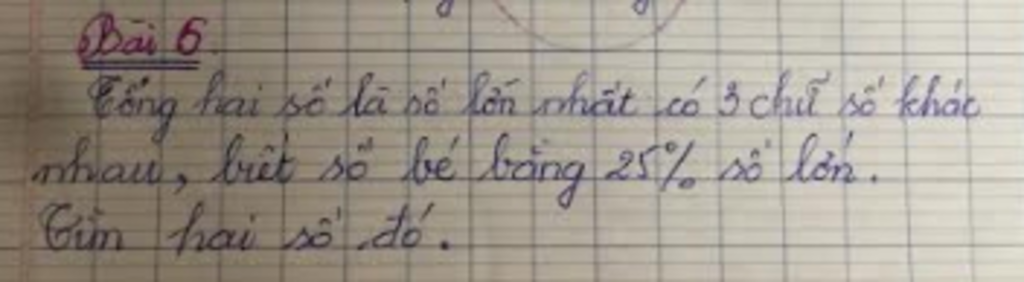 Bài 6.
Tổng hai số là số lớn nhất có 3 chữ số khác
nhau, biết số bé bằng 25% số lớn.
Tìm hai số đó.